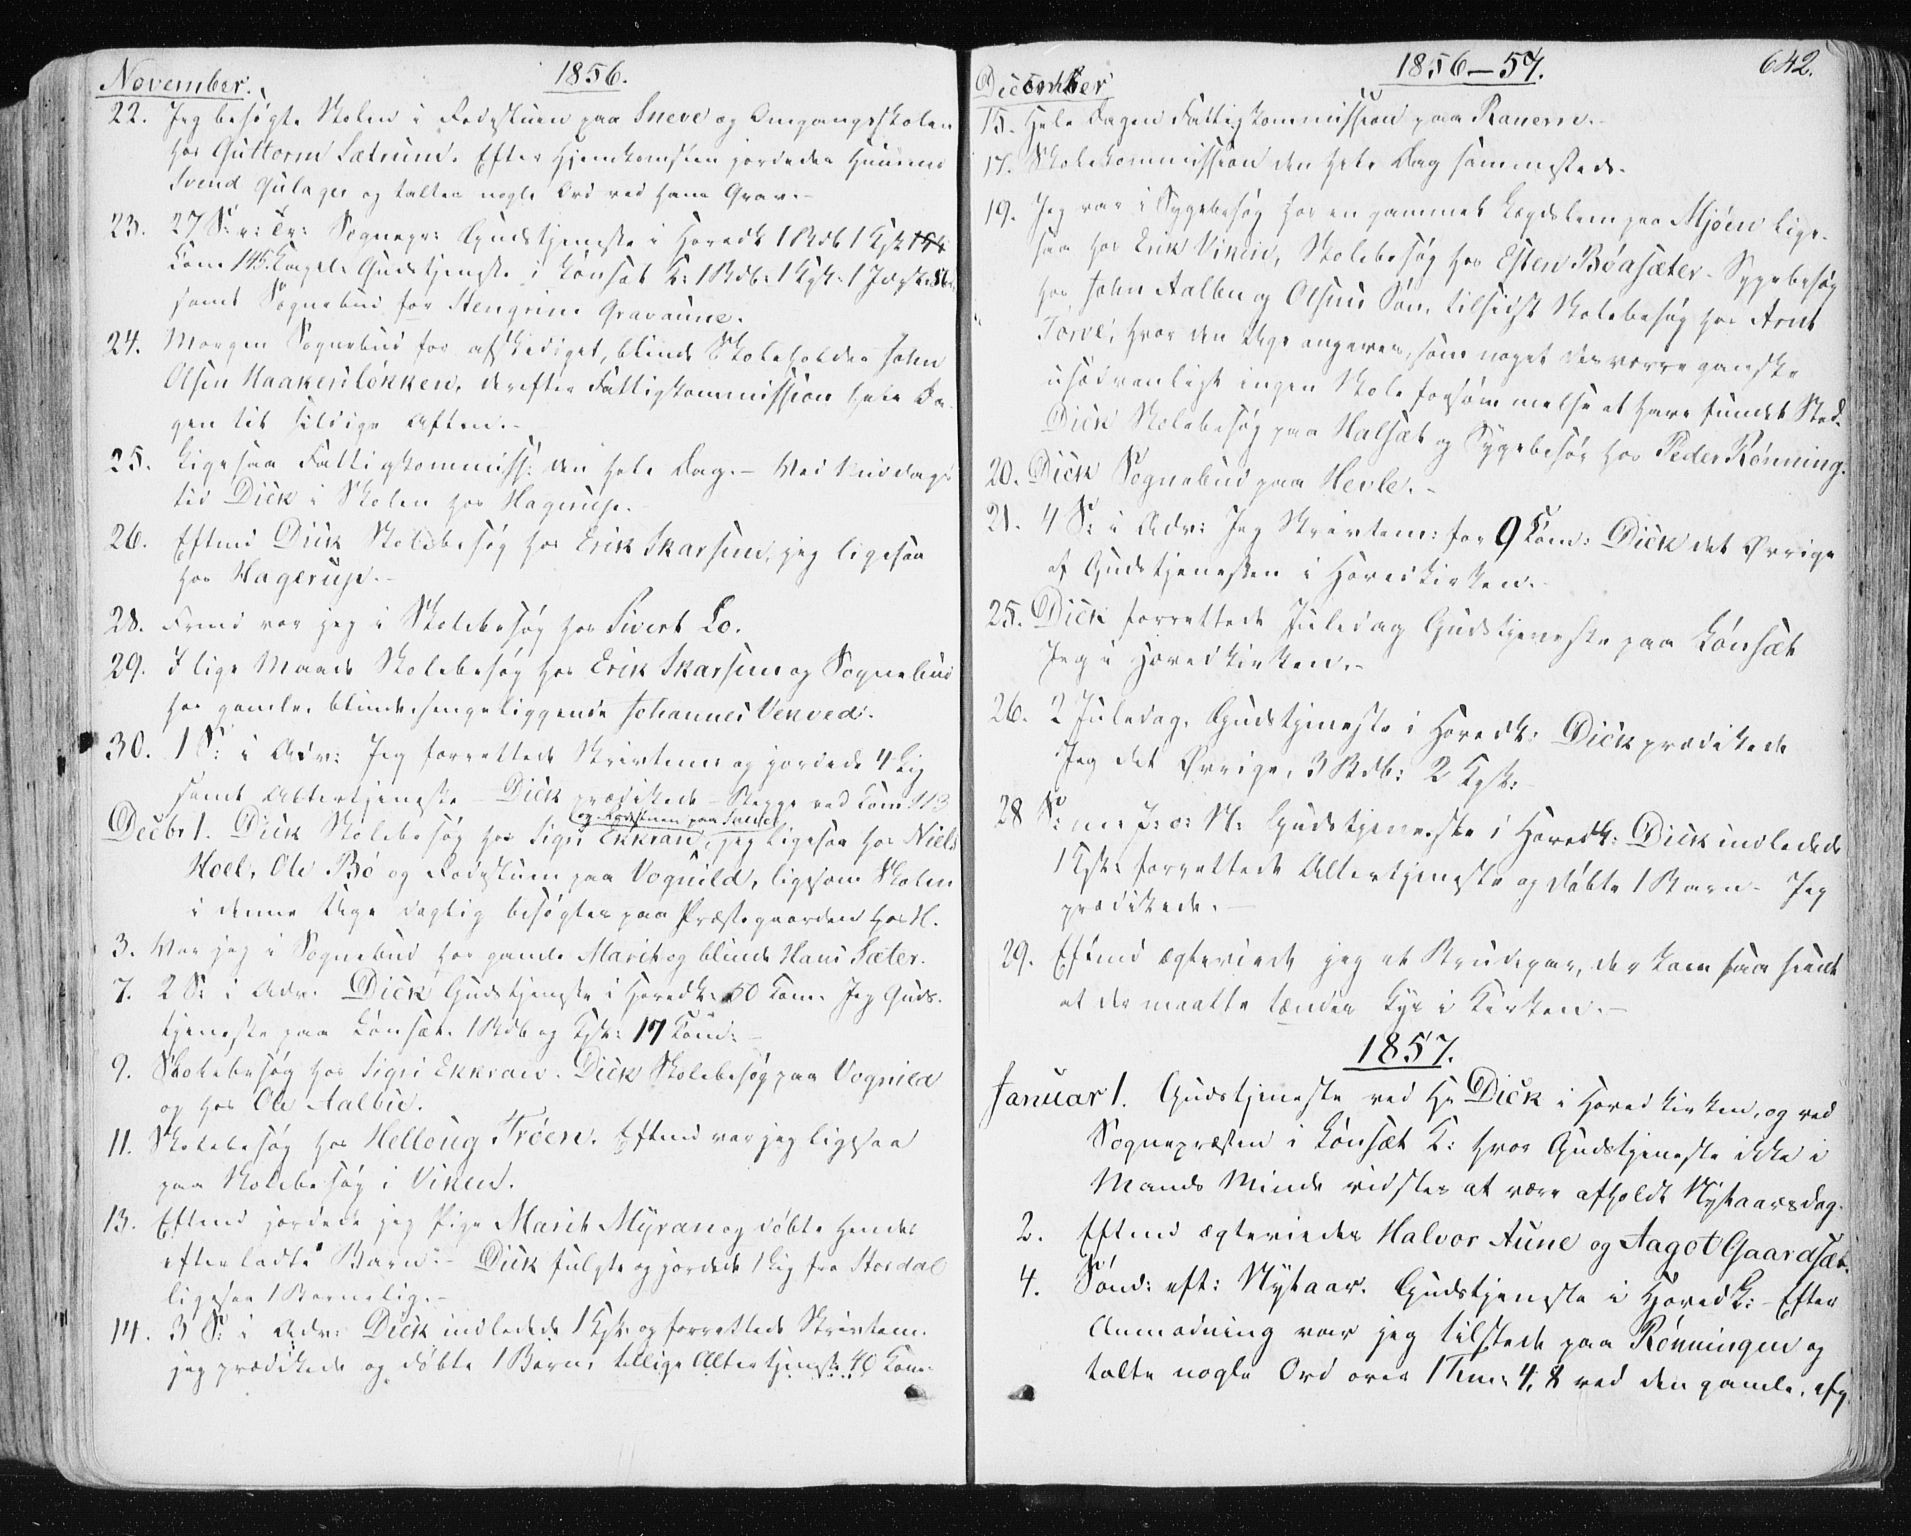 November. 1856.
22. Jeg besøgte Skolen i Rodestuen paa Sneve og Omgangsskolen
hos Guttorm Sætrum. Efter Hjemkomsten jordedes Huusmd
Svend Gulager og taltes nogle Ord ved hans Grav.-
23. 27 S: e: Tr: Sognepr: Gudstjeneste i Hovedk 1 Rdb 1 Kgk
Kom. 145. Kapel. Gudstjeneste i Lønset K: 1 Rdb: 1 Kgk. 1
samt Sognebud for Stengrim Gravaune.
24. Morgen Sognebud for afskediget, blinde Skoleholder John
Olsen Haakensløkken, derefter Fattigkommission hele Da-
gen til sildige Aften.-
25. Ligesaa Fattigkommiss: den hele Dag.- Ved Middags-
tid Dick i Skolen hos Hagerup.
26. Eftmd Dick Skolebesøg hos Erik Skarsem, jeg ligesaa
hos Hagerup.-
28. Frmd var jeg i Skolebesøg hos Sivert Lo.
29. I lige Maade Skolebesøg hos Erik Skarsem og Sognebud
hos gamle, blinde sengeliggende Johannes Vekved.
30. 1 S: i Adv: Jeg forrettede Skriftem og jordede 4 Lig
samt Altertjeneste - Dick prædikede - Kom 113
og Rodestuen paa
Decbr 1. Dick Skolebesøg hos Sigri Ekkran, jeg ligesaa hos Niels
Hoel, Ole Bø og Rodestuen paa Vognild, ligesom Skolen
i denne Uge daglig besøgtes paa Præstegaarden hos H.
3. Var jeg i Sognebud hos gamle Marit og blinde Hans Sæter.
7. 2 S: i Adv. Dick Gudstjeneste i Hovedk. 60 Kom. Jeg Guds-
tjeneste paa Lønset. 1 Rdb og Kgk: 17 Kom:-
9. Skolebesøg hos Sigri Ekkran. Dick Skolebesøg paa Vognild
og hos Ole Aalbu.
11. Skolebesøg hos Helloug Trøen. Eftmd var jeg ligesaa
paa Skolebesøg i Viken.
13. Eftmd jordede jeg Pige Marit Myran og døbte hendes
efterladte Barn.- Dick fulgte og jordede 1 Lig fra Stordal
ligesaa 1 Barnelig.-
14. 3 S: i Adv: Dick indledede 1 Kgk. og forrettede Skriftem.
jeg prædikede og døbte 1 Barn, tillige Altertjeneste 40 Kom.
December 1856-57. 642.
15. Hele Dagen Fattigkommission paa Rauem.-
17. Skolekommission den hele Dag sammesteds.
19. Jeg var i Sygebesøg hos en gammel Lægdslem paa Mjøen lige-
saa hos Erik Viken, Skolebesøg hos Esten Bøasæter - Sygebesøg
hos John Aalbu og Olsens Søn, tilsidst Skolebesøg hos Arnt
Torve, hvor den Uge angaves, som noget desværre ganske
usædvanligt ingen Skoleforsømmelse at have fundet Sted.
Dick Skolebesøg paa Halset og Sygebesøg hos Peder Rønning.
20. Dick Sognebud paa Hevle.-
21. 4 S: i Adv: Jeg Skriftem: for 9 Kom: Dick det Øvrige
af Gudstjenesten i Hovedkirken.-
25. Dick forrettede Juledag Gudstjeneste paa Lønset
Jeg i Hovedkirken.-
26. 2 Juledag, Gudstjeneste i Hovedk: Dick prædikede
Jeg det Øvrige, 3 Rdb: 2 Kgk:
28 S: m: J: o: N: Gudstjeneste i Hovedk: Dick indledede
1 Kgk: forrettede Altertjeneste og døbte 1 Barn - Jeg
prædikede.-
29. Eftmd ægteviede jeg et Brudepar, der kom saa seent
at der maatte tændes Lys i Kirken.-
1857.
Januar 1. Gudstjeneste ved Hr Dick i Hovedkirken, og ved
Sognepræsten i Lønset K: hvor Gudstjeneste ikke i
Mands Minde vidstes at være afholdt Nytaarsdag.
2. Eftmd ægteviedes Halvor Aune og Aagot Gaardsæt.
4. Sønd: eft: Nytaar. Gudstjeneste i Hovedk: - Efter
Anmodning var jeg tilstede paa Rønningen og
talte nogle Ord over 1 Tim: 4, 8 ved den gamle,